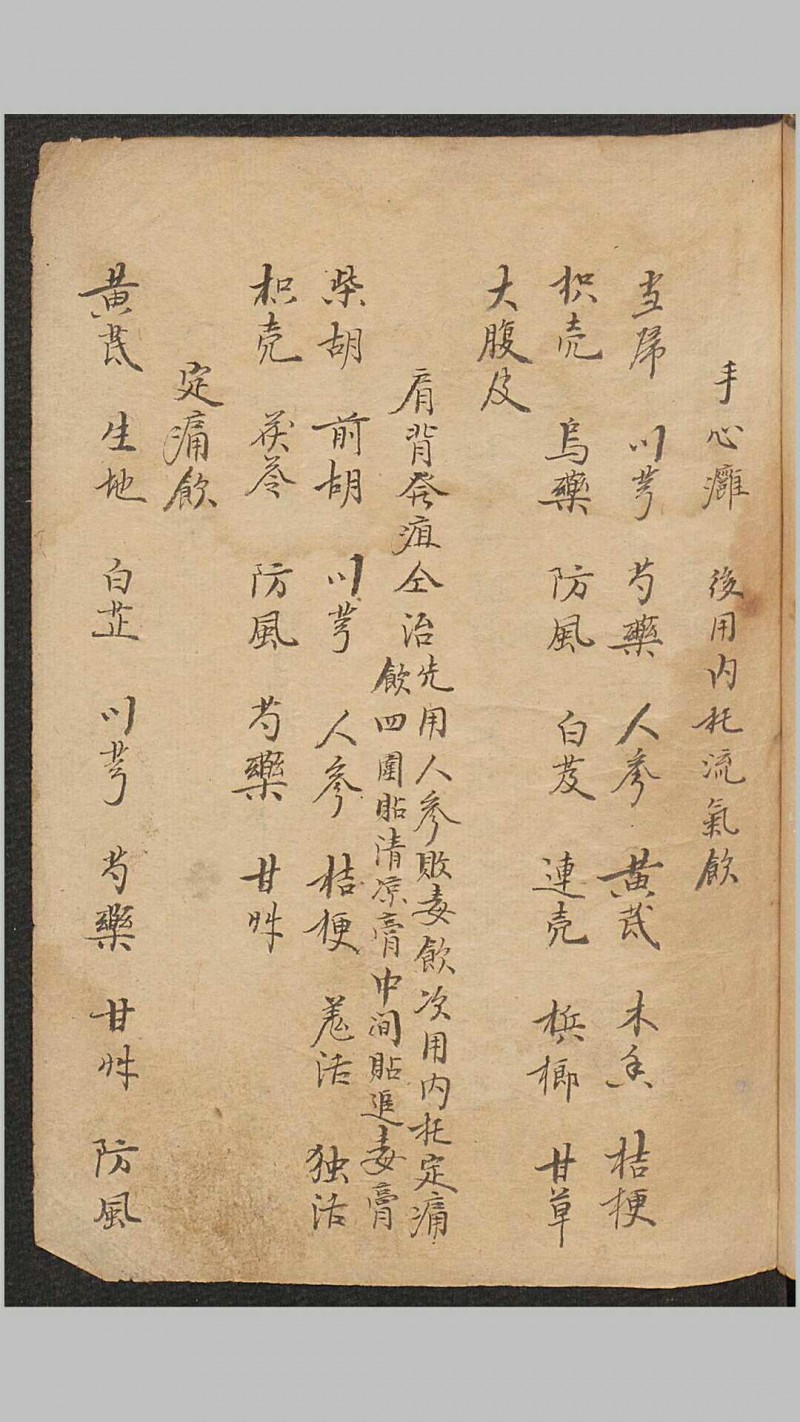 手心癰 後用内托流氣飲
当歸 川芎 芍藥 人參 黄芪 木香 桔梗
枳壳 烏藥 防風 白芨 連壳 梹榔 甘草
大腹皮
肩背發疽仝治
先用人參敗毒飲次用内托定痛
飲四圍貼清凉膏中间貼追毒膏
柴胡 前胡 川芎 人參 桔梗 羗活 独活
枳壳 茯苓 防風 芍藥 甘艸
定痛飲
黄芪 生地 白芷 川芎 芍藥 甘艸 防風